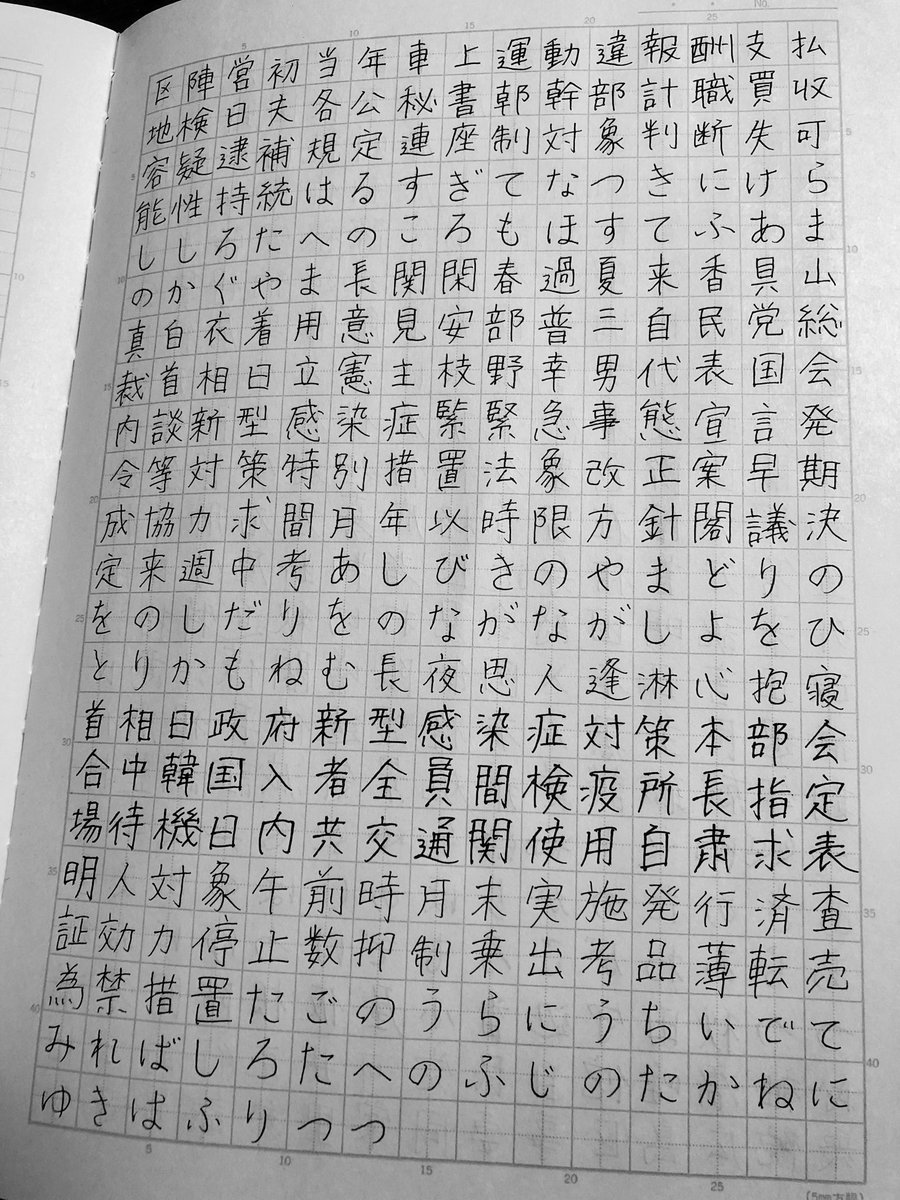 No.
区陣営初当年車上運動違報酬支払
地検日夫各公秘書幹部計職買収
容疑逮補規定連座制対象判断失可
能性持統はるすぎてなつきにけら
ししろたへのころもほすてふあま
のかぐやま長関閑春過夏来香具山
真白衣着用意見安部普三自民党総
裁首相日立憲主枝野幸男代表国会
内談新型感染症緊緊急事態宣言発
令等対策特別措置法象改正案早期
成協力求間月年以時限方針閣議決
定来週中考あしびきのやまどりの
をのしだりをのながながしよをひ
とりかもねむ長夜思人逢淋心抱寝
首相日政府新型感染症対策本部会
合中韓国入者全員間検疫所長指定
場待機日内共交通関使用自粛求表
明人対象午前時月末実施発行済査
証効力停止数抑制乗出考品薄転売
為禁措置たごのうらにうちいでて
みればしろたへのふじのたかねに
ゆきはふりつつ